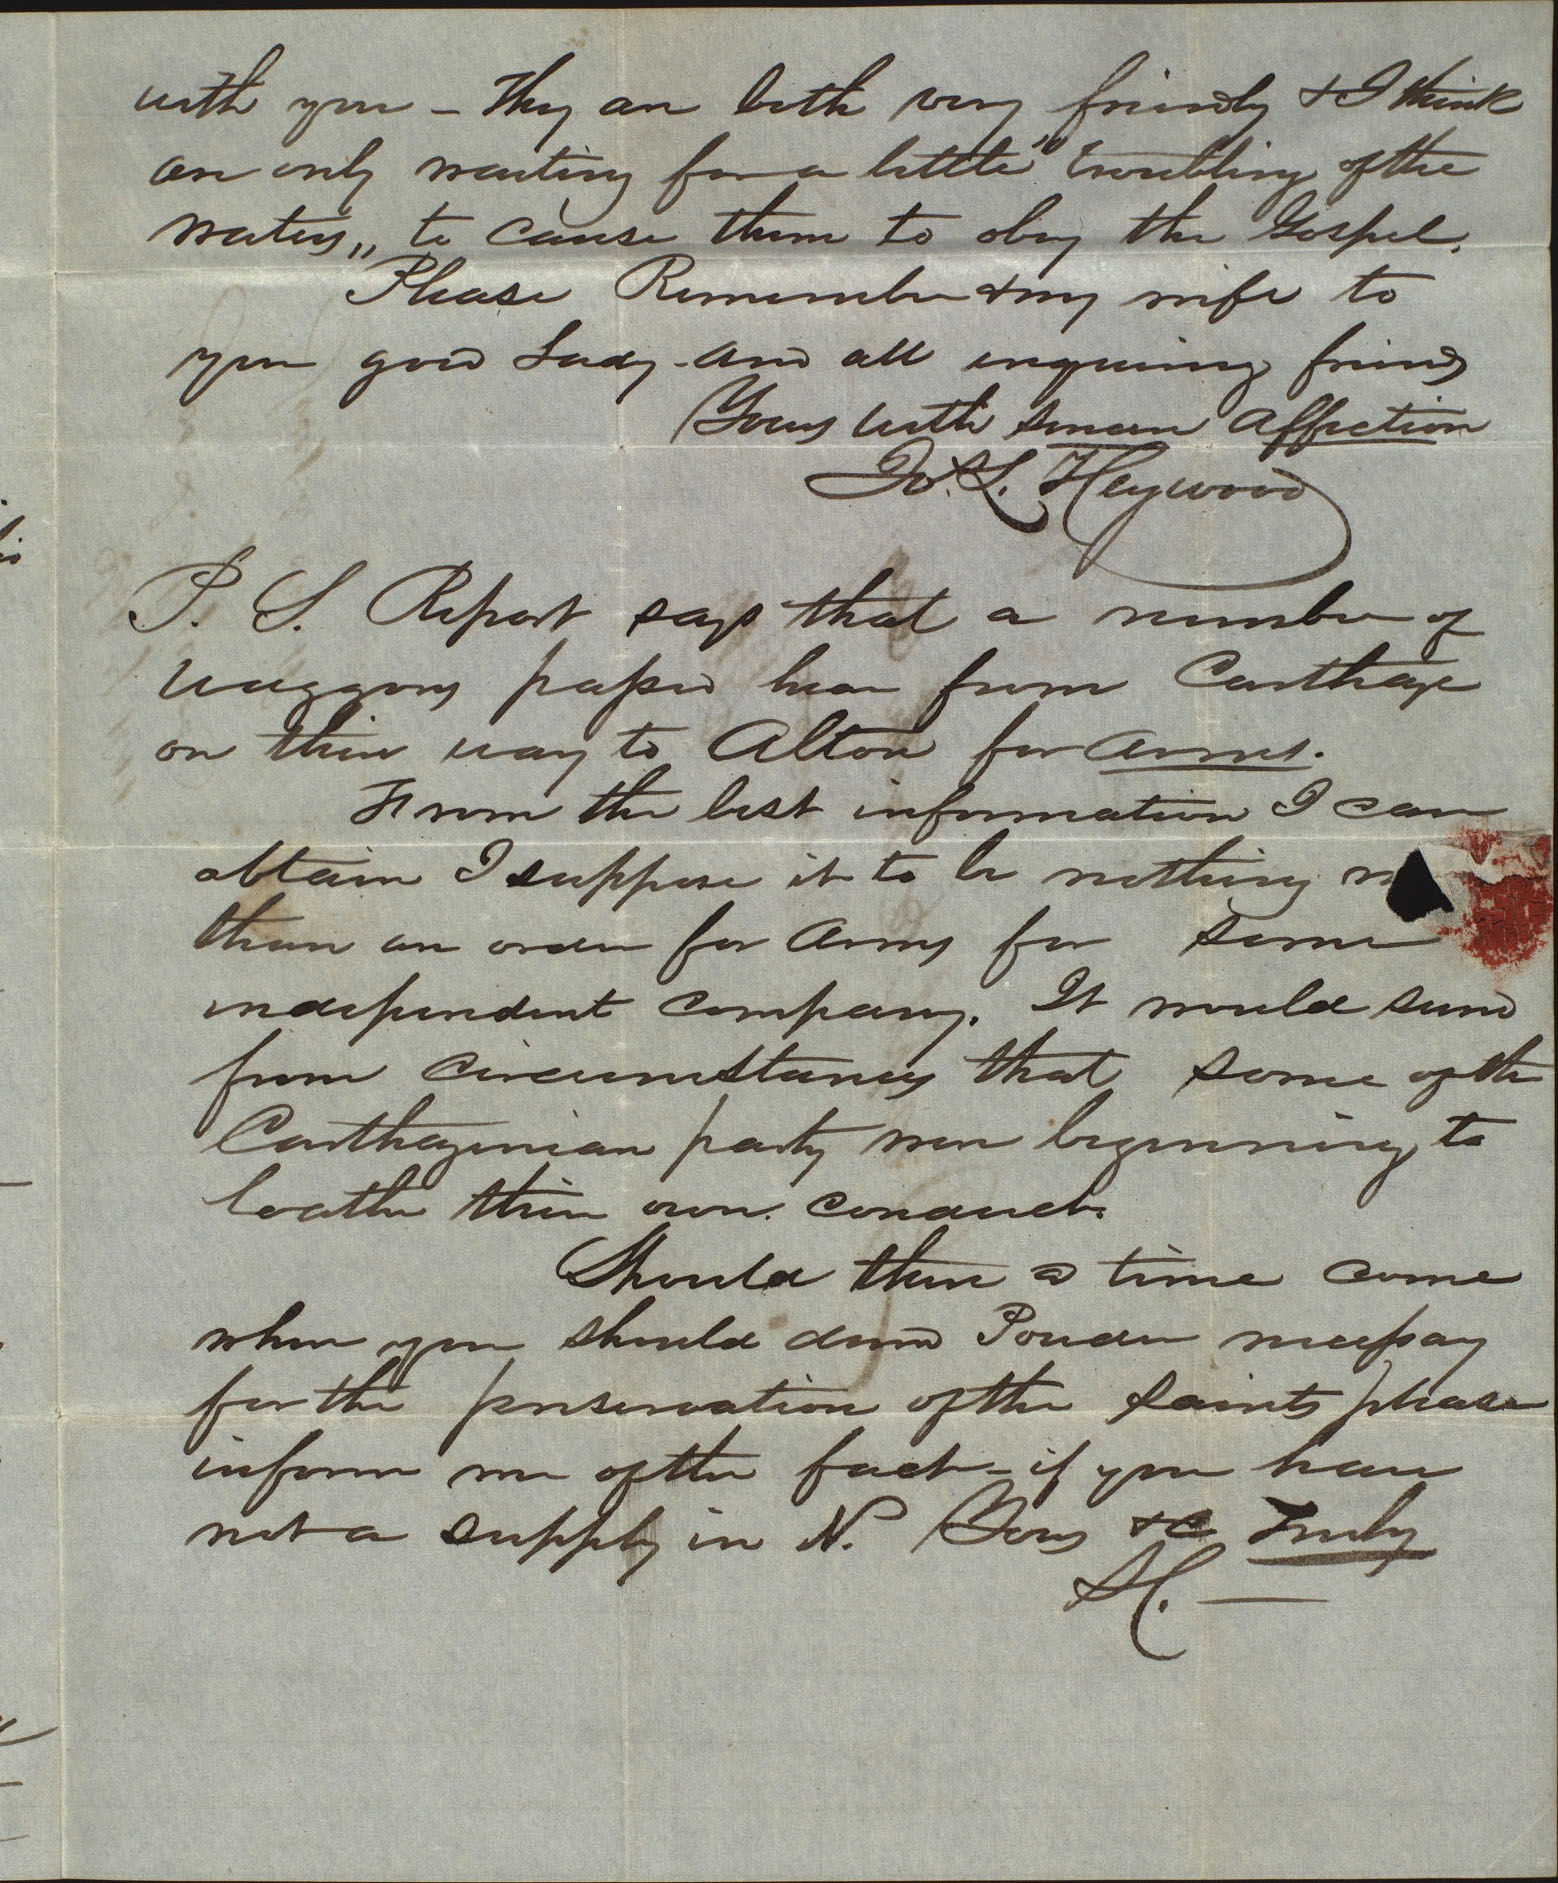 with you – They are both very friendly & I think
are only waiting for a little "troubling of the
waters" to cause them to obey the Gospel.
Please Remember & my wife to
your good Lady – and all enquiring friends
Yours with sincere affection
Jos. L. Heywood
P. S. Report says that a number of
waggons passed here from Carthage
on their way to Alton for arms.
From the best information I can
obtain I suppose it to be nothing
than an order for Arms for some
independent company. It would seem
from circumstances that some of the
Carthagenian party were beginning to
loathe their own conduct.
Should there a time come
when you should deem Powder necessary
for the preservation of the saints please
inform me of the fact – if you have
not a supply in N. Yours &c Truly
H. —